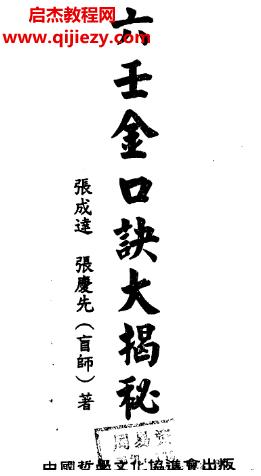 启杰教程网
www.qijiezy.com
六壬金口訣大揭秘
張成達 張慶先(盲師)著
中國哲學文化協進會出版